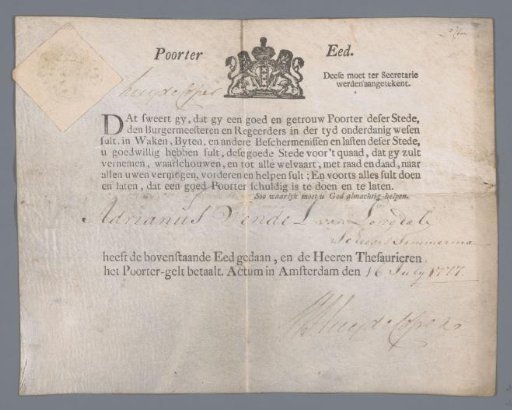 Poorter Eed.
Deese moet ter Secretarie
werden aangetekent.
DAt sweert gy, dat gy een goed en getrouw Poorter deser Stede,
den Burgermeesteren en Regeerders in der tyd onderdanig wesen
sult, in Waken, Byten, en andere Beschermenissen en lasten deser Stede,
u goedwillig hebben sult, dese goede Stede voor 't quaad, dat gy zult
vernemen, waarschouwen, en tot alle welvaart, met raad en daad, naar
allen uwen vermogen, vorderen en helpen sult; En voorts alles sult doen
en laten, dat een goed Poorter schuldig is te doen en te laten.
Soo waarlyk moet u God almachtig helpen.
Adrianus Vendel van
heeft de bovenstaande Eed gedaan, en de Heeren Thesaurieren
het Poorter-gelt betaalt. Actum in Amsterdam den 16 July 1777.